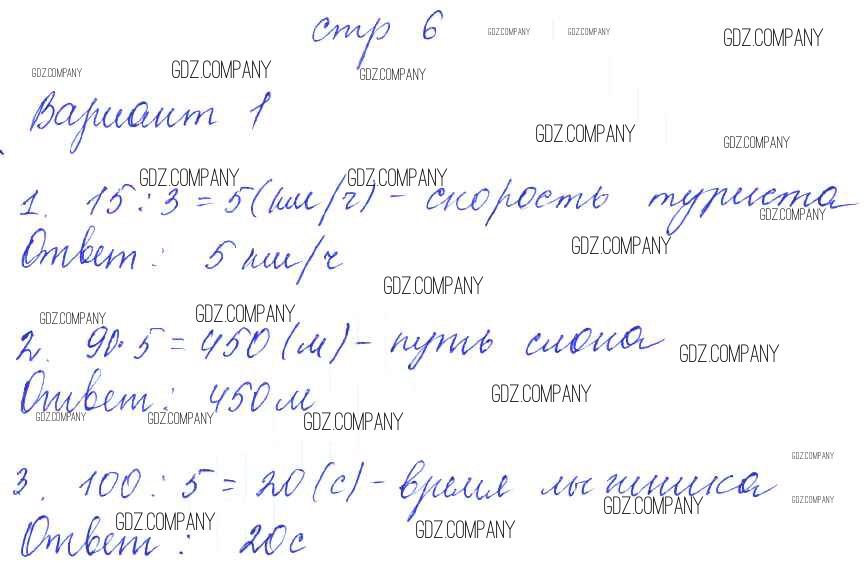 стр 6
GDZ.COMPANY GDZ.COMPANY GDZ.COMPANY
GDZ.COMPANY GDZ.COMPANY GDZ.COMPANY
Вариант 1
GDZ.COMPANY GDZ.COMPANY
GDZ.COMPANY GDZ.COMPANY
1. 15 : 3 = 5 (км/ч) - скорость туриста
GDZ.COMPANY
Ответ : 5 км/ч
GDZ.COMPANY
GDZ.COMPANY
GDZ.COMPANY GDZ.COMPANY
2. 90 · 5 = 450 (м) - путь слона
GDZ.COMPANY
Ответ : 450 м
GDZ.COMPANY
GDZ.COMPANY GDZ.COMPANY GDZ.COMPANY
GDZ.COMPANY
3. 100 : 5 = 20 (с) - время лыжника
GDZ.COMPANY GDZ.COMPANY
Ответ : 20 с
GDZ.COMPANY GDZ.COMPANY